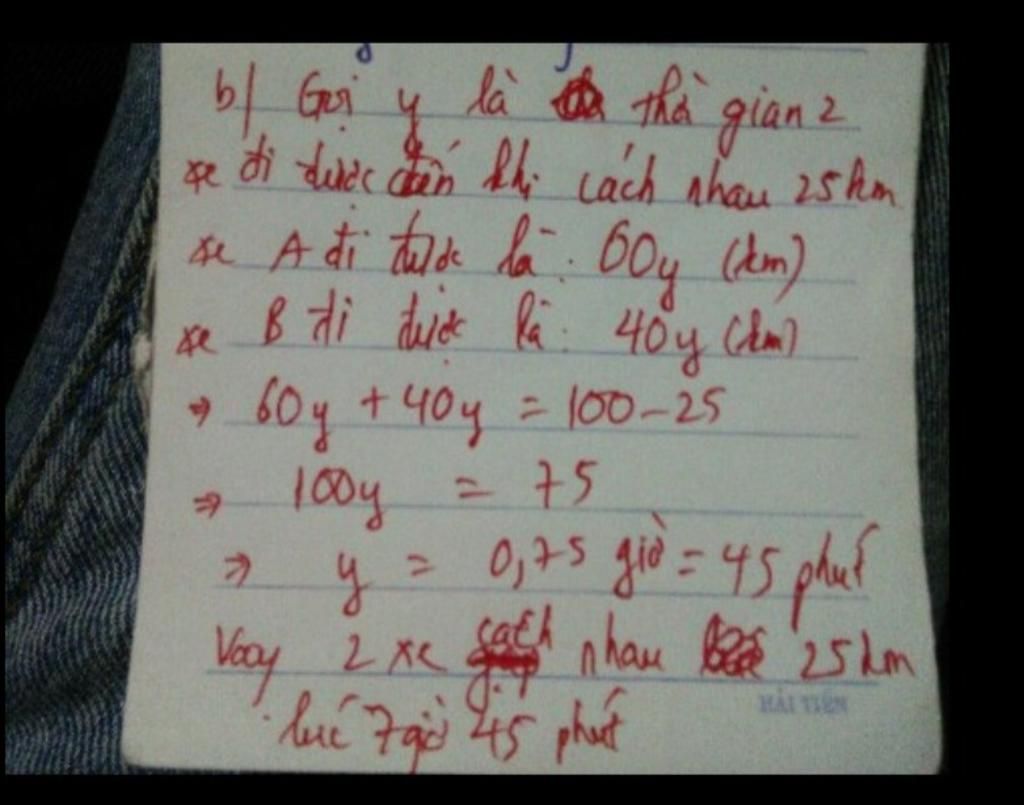 b) Gọi y là thời gian 2
xe đi được đến khi cách nhau 25 km
xe A đi được là: 60y (km)
xe B đi được là: 40y (km)
⇒ 60y + 40y = 100 - 25
⇒ 100y = 75
⇒ y = 0,75 giờ = 45 phút
Vậy 2 xe cách nhau 25 km
HẢI TIẾN
lúc 7 giờ 45 phút